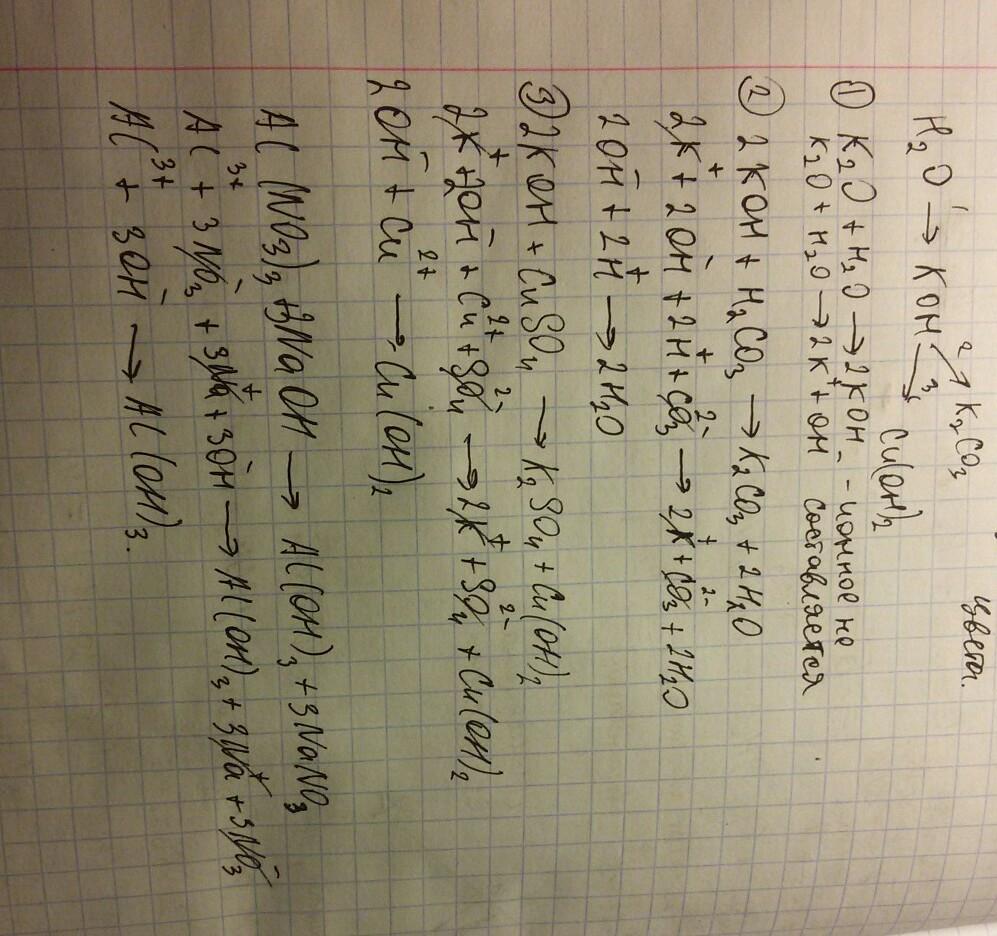 цвета.
H₂O →¹ KOH →² K₂CO₃
→³ Cu(OH)₂
① K₂O + H₂O → 2KOH - ионное не
K₂O + H₂O → 2K⁺ + OH⁻ составляется
② 2KOH + H₂CO₃ → K₂CO₃ + 2H₂O
2K⁺ + 2OH⁻ + 2H⁺ + CO₃²⁻ → 2K⁺ + CO₃²⁻ + 2H₂O
2OH⁻ + 2H⁺ → 2H₂O
③ 2KOH + CuSO₄ → K₂SO₄ + Cu(OH)₂
2K⁺ + 2OH⁻ + Cu²⁺ + SO₄²⁻ → 2K⁺ + SO₄²⁻ + Cu(OH)₂
2OH⁻ + Cu²⁺ → Cu(OH)₂
Al(NO₃)₃ + 3NaOH → Al(OH)₃ + 3NaNO₃
Al³⁺ + 3NO₃⁻ + 3Na⁺ + 3OH⁻ → Al(OH)₃ + 3Na⁺ + 3NO₃⁻
Al³⁺ + 3OH⁻ → Al(OH)₃.